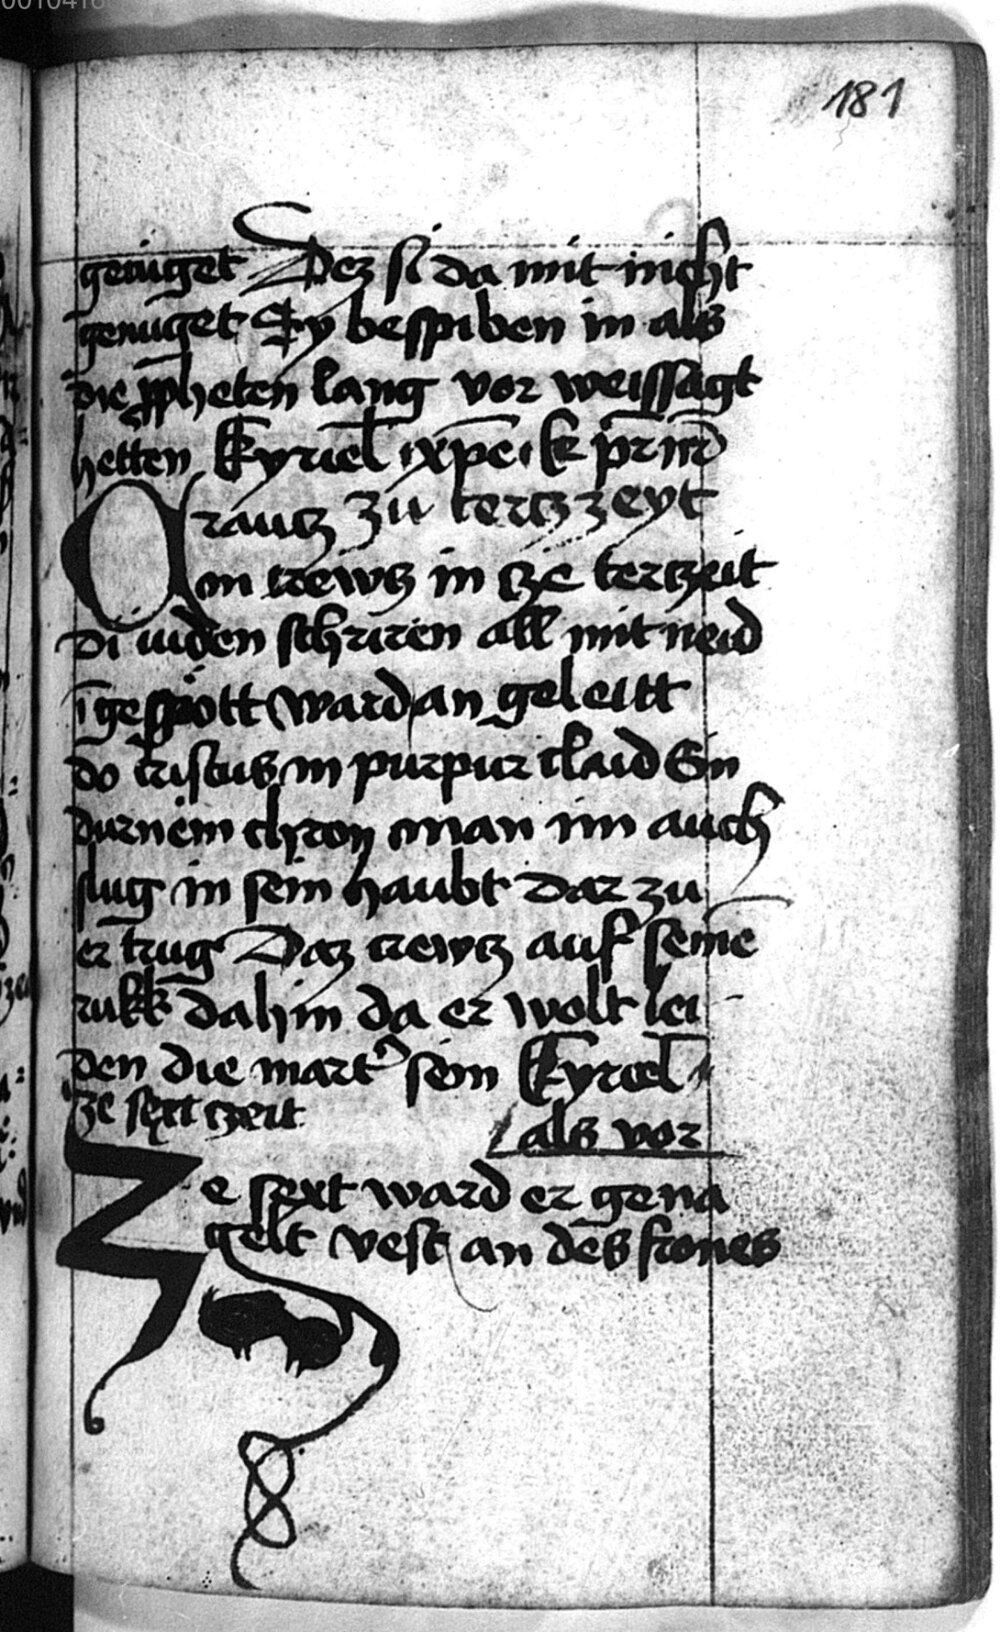 0010416
181
genuget Dez si da mit nicht
genuget Sy bespiben in als
die ppheten lang vor weissagt
hetten kyriel xpe k pr nr
zu tertz zeyt
An crewtz in cze terczeit
Di iuden schriren all mit neid
ī gespott ward an geleitt
do cristus in purpur claid Ein
durnein chron man im auch
slug in sein haubt dar zu
er trug Daz crewtz auf seinē
rukk dahin da er wolt lei
den die mart̉ sein kyriel
ze sext czeit
als vor
Ze sext ward er gena
gelt vest an des frones